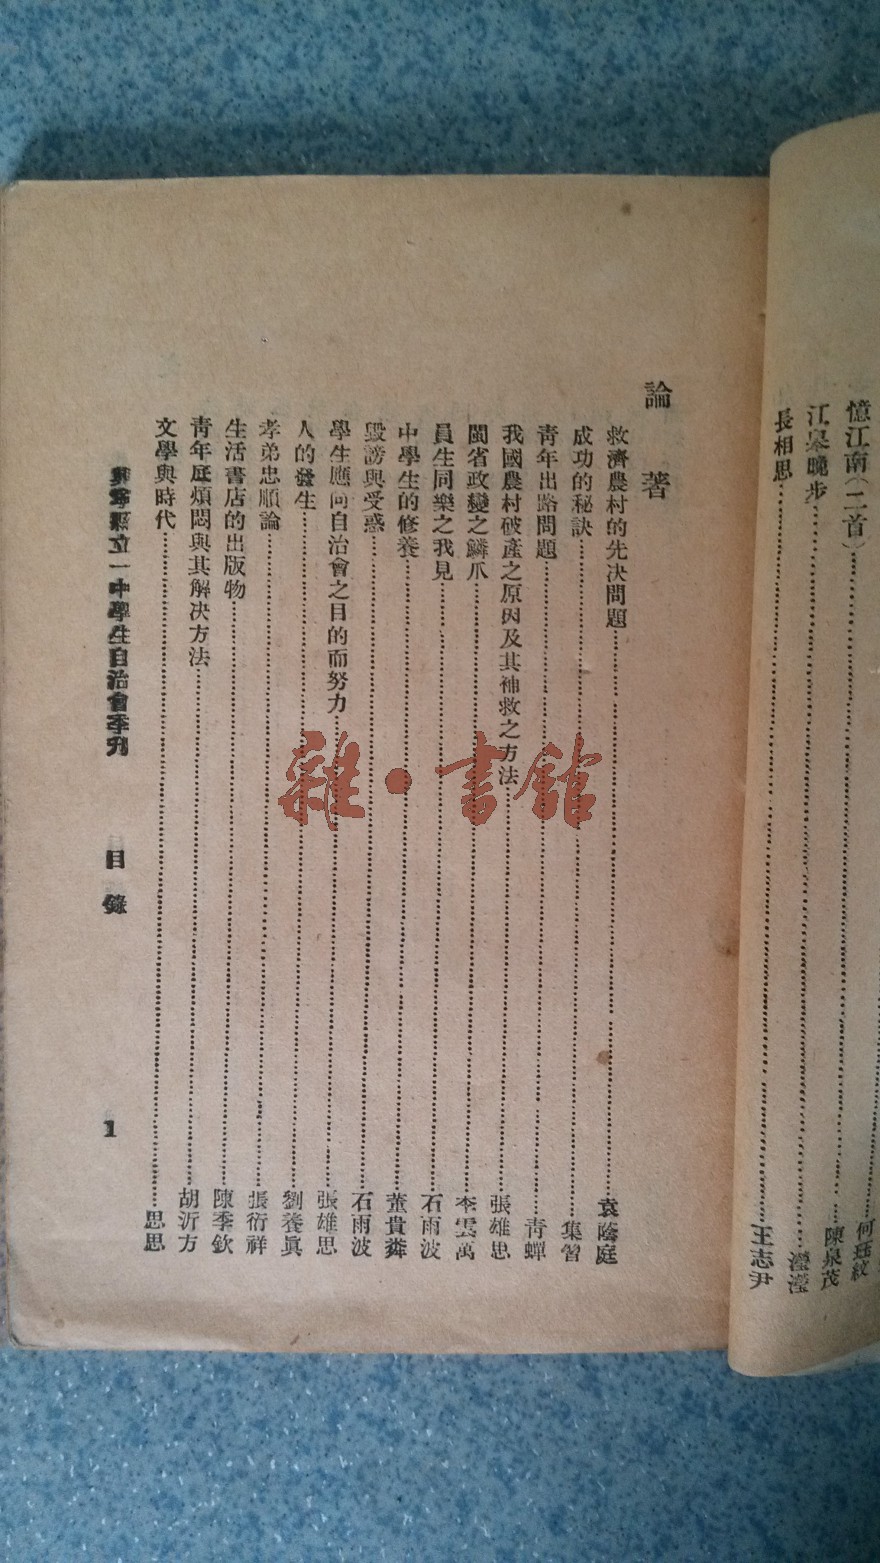 憶江南(二首)……何㺿紋
江臯晚步……陳泉茂
長相思……瀅瀅
王志尹
論著
救濟農村的先决問題……袁蔭庭
成功的秘訣……集習
青年出路問題……青蟬
我國農村破產之原因及其補救之方法……張雄思
閩省政變之鱗爪……李雲萬
員生同樂之我見……石雨波
中學生的修養……董貴粦
毀謗與受惑……石雨波
學生應向自治會之目的而努力……張雄思
人的發生……劉養眞
孝弟忠順論……張衍祥
生活書店的出版物……陳季欽
青年底煩悶與其解决方法……胡沂方
文學與時代……思思
興寧縣立一中學生自治會季刋 目錄 1
雜·書館